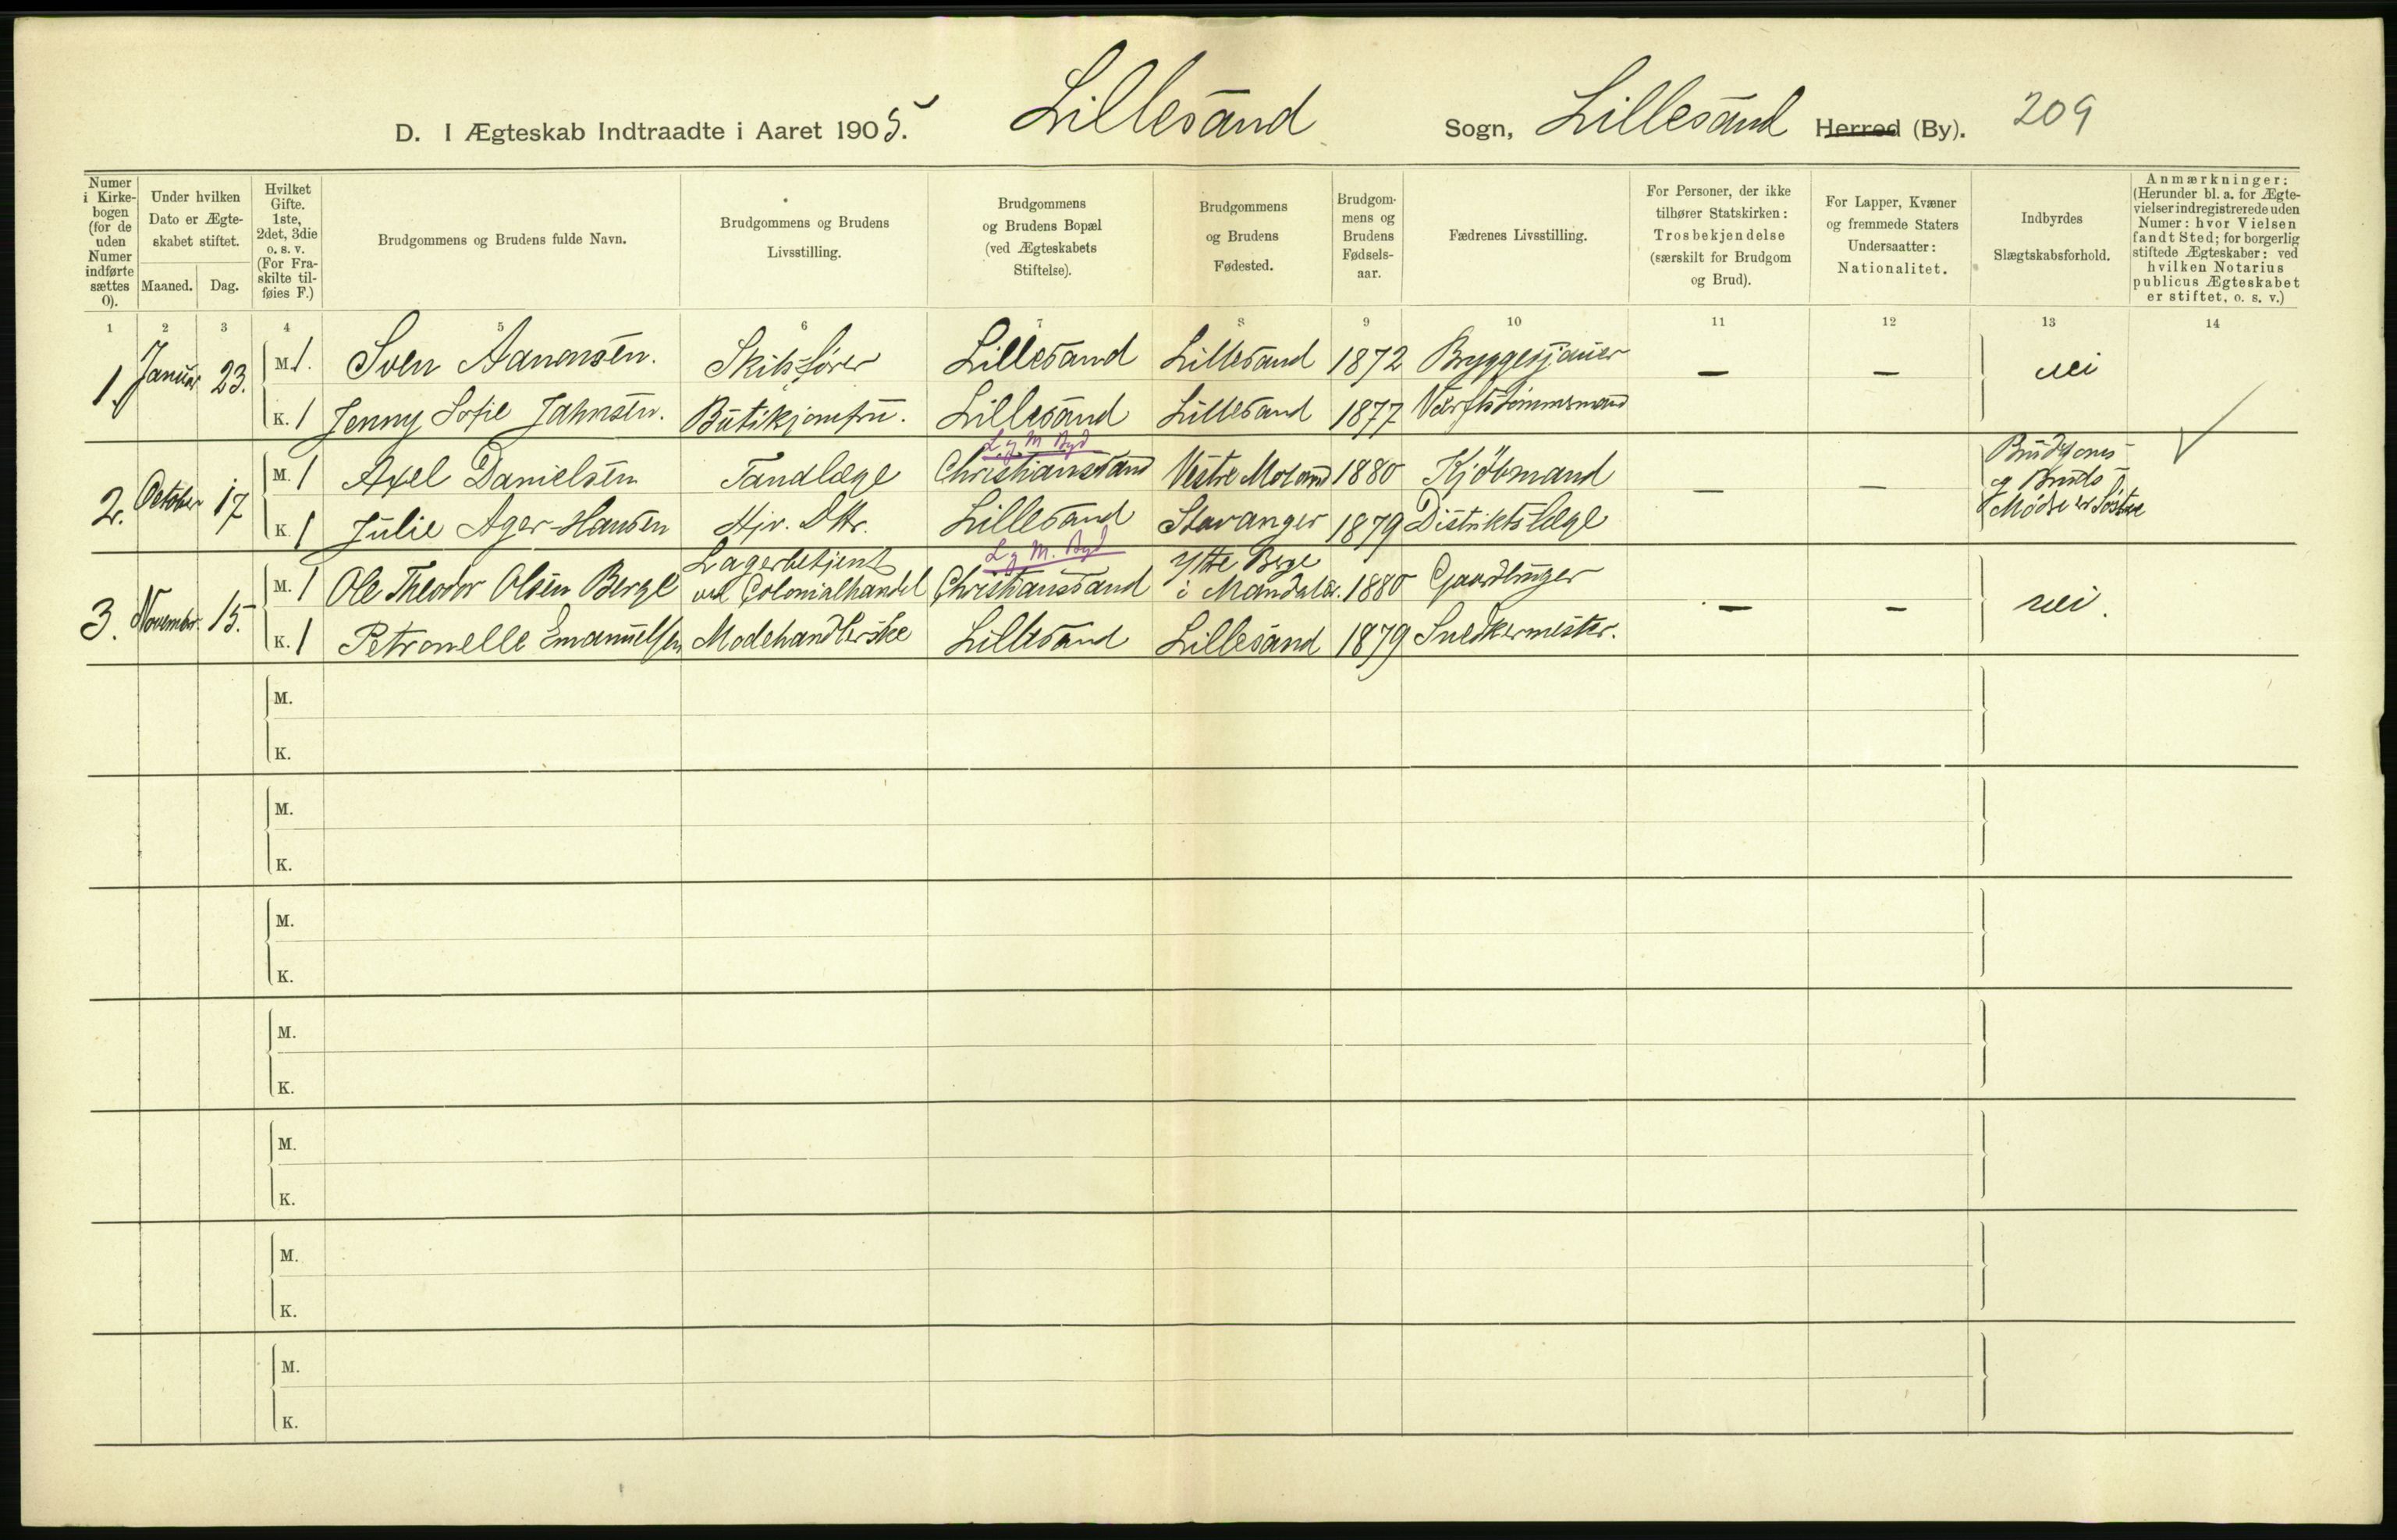 D. I Ægteskab Indtraadte i Aaret 1905. Lillesand Sogn, Lillesand Herred (By). 209
Numer i Kirkebogen (for de uden Numer indførte sættes 0).
Under hvilken Dato er Ægteskabet stiftet.
Maaned. Dag.
Hvilket Gifte. 1ste, 2det, 3die o. s. v. (For Fraskilte tilføies F.)
Brudgommens og Brudens fulde Navn.
Brudgommens og Brudens Livsstilling.
Brudgommens og Brudens Bopæl (ved Ægteskabets Stiftelse).
Brudgommens og Brudens Fødested.
Brudgommens og Brudens Fødselsaar.
Fædrenes Livsstilling.
For Personer, der ikke tilhører Statskirken: Trosbekjendelse (særskilt for Brudgom og Brud).
For Lapper, Kvæner og fremmede Staters Undersaatter: Nationalitet.
Indbyrdes Slægtskabsforhold.
Anmærkninger: (Herunder bl. a. for Ægtevielser indregistrerede uden Numer: hvor Vielsen fandt Sted; for borgerlig stiftede Ægteskaber: ved hvilken Notarius publicus Ægteskabet er stiftet, o. s. v.)
1 2 3 4 5 6 7 8 9 10 11 12 13 14
1. Januar 23. M. 1. Sven Aanonsen. Skibsfører Lillesand Lillesand 1872 Bryggesjauer — — nei
K. 1 Jenny Sofie Jahnsen. Butikjomfru. Lillesand Lillesand 1877 Værftstømmermand
L. g. M. Byd
2. October 17 M. 1 Axel Danielsen Tandlæge Christianssand Vestre Moland 1880 Kjöbmand — — Brudgoms og Bruds Moder er Søstre
K. 1 Julie Ager-Hansen Hjv. Dttr. Lillesand Stavanger 1879 Distriktslæge
L g M. Byd
3. November 15. M. 1 Ole Theodor Olsen Berge Lagerbetjent ved Colonialhandel Christianssand Ytte Berge i Mandal 1880 Gaardbruger — — nei.
K. 1 Petronelle Emanuelsen Modehandlerske Lillesand Lillesand 1879 Snedkermester.
M.
K.
M.
K.
M.
K.
M.
K.
M.
K.
M.
K.
M.
K.